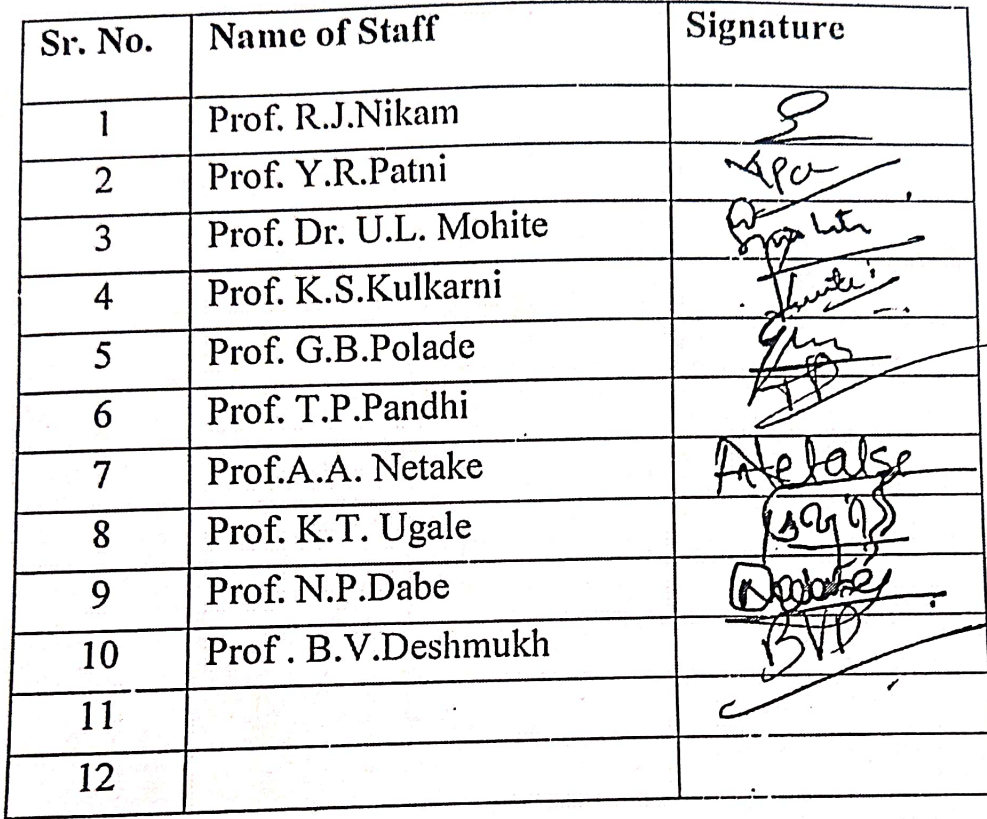 Sr. No. Name of Staff Signature
1 Prof. R.J.Nikam
2 Prof. Y.R.Patni
3 Prof. Dr. U.L. Mohite
4 Prof. K.S.Kulkarni
5 Prof. G.B.Polade
6 Prof. T.P.Pandhi TP
7 Prof.A.A. Netake
8 Prof. K.T. Ugale
9 Prof. N.P.Dabe
10 Prof . B.V.Deshmukh BVD
11
12